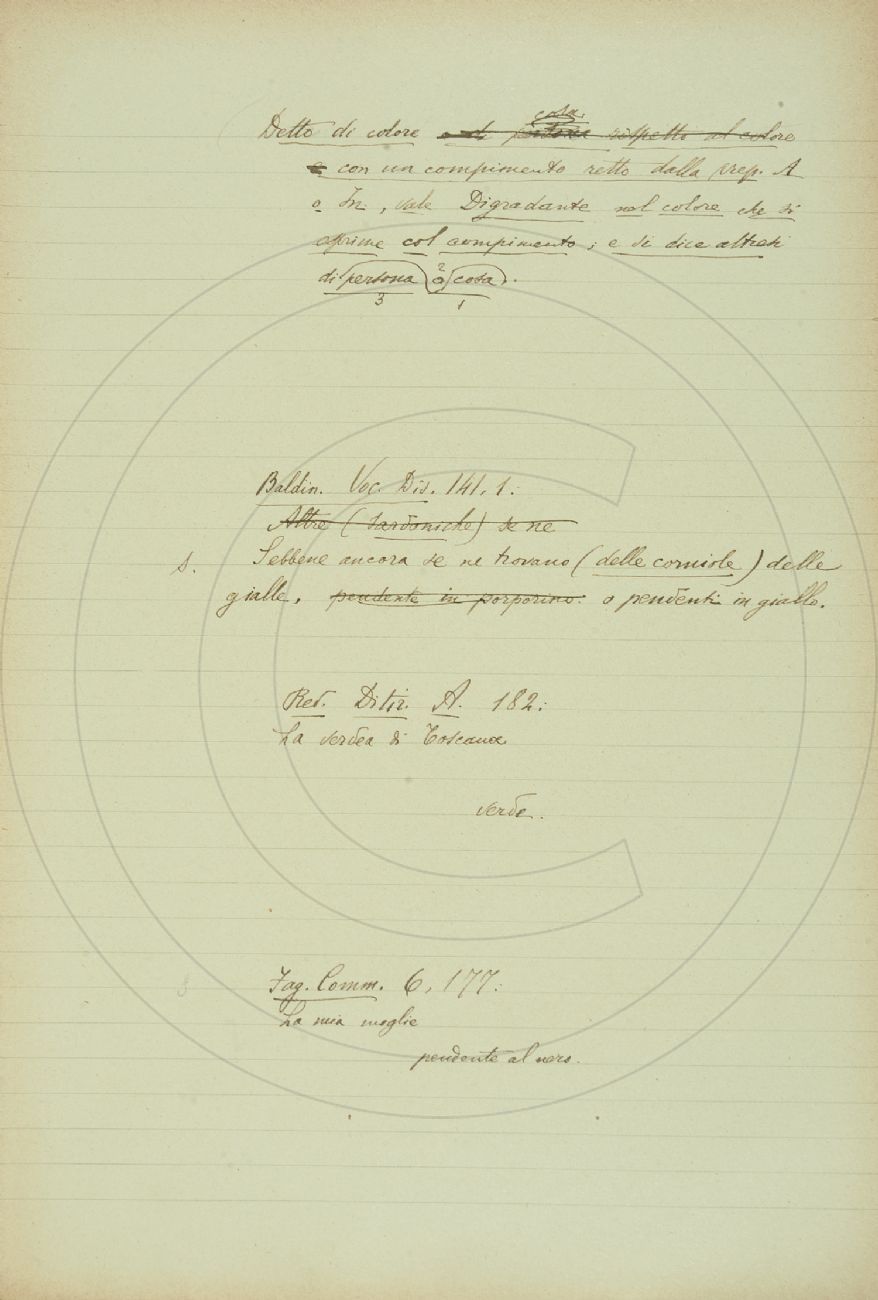 cosa.
Detto di colore o di persona rispetto al colore
e con un compimento retto dalla prep. A
o In, vale Digradante nel colore che si
esprime col compimento; e si dice altresì
di persona o cosa.
2
3 1
Baldin. Voc. Dis. 141. 1:
Altre (sardoniche) se ne
s. Sebbene ancora se ne trovano (delle corniole) delle
gialle, pendente in porporino. o pendenti in giallo.
Red. Ditir. A. 182:
La verdea di Toscana
verde.
Fag. Comm. 6, 177:
La mia moglie
pendente al nero.